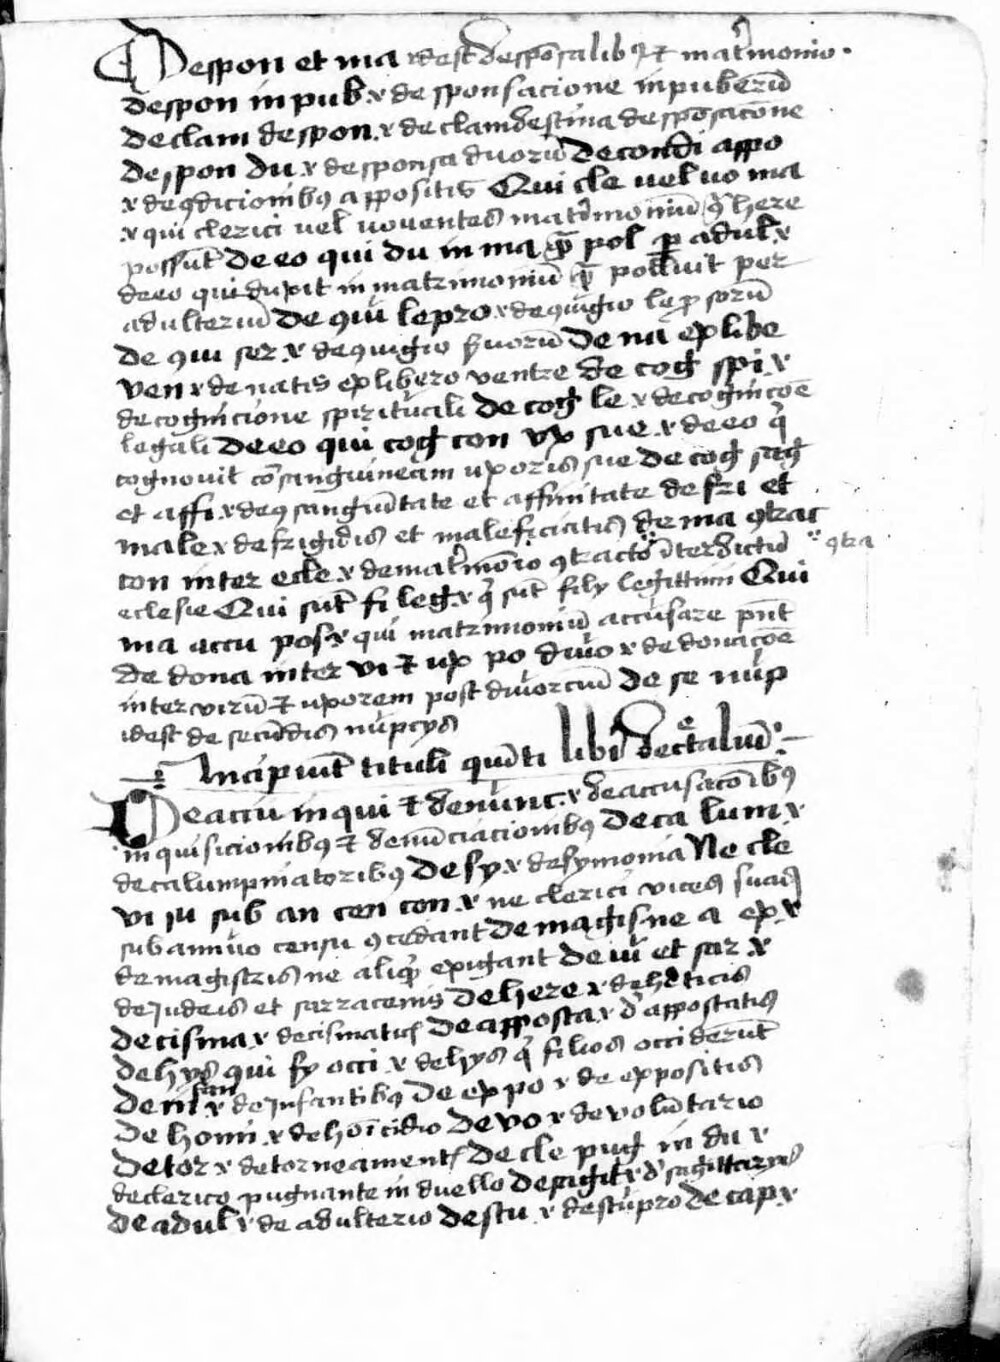 De spon et ma idest de spōsalibꝰ et mat'monio .
de spon in pub .r de sponsacione inpuberū
de clam despon .r de clamdestina despōsacōne
despon du .r desponsa duorū De condi appo
.r de ꝯdicionibꝰ appositis Qui cle uel uo ma
.r qui clerici uel uouentes mat'moniū ꝯ'here
possūt De eo qui du in ma quā pol per adul .r
de eo qui dupit in matrimoniū quā polluit per
adulteriū De ꝯiu lepro .r de ꝯiugio leprosorū
de ꝯiu ser .r de ꝯiugio s'uorū De na ex libe
ven .r de natis ex libero ventre de cog spi .r
de cognicione spirituali De cog le .r de cognicōe
legali De eo qui cog con ux sue .r de eo q'
cognouit cōsanguineam uxoris sue De cog sag
et affi .r de ꝯsanguītate et affinitate de fri et
male .r de frigidis et maleficiatis de ma ꝯtrac
con inter ecle .r de mat'mōio ꝯtracto īterdictū ꝯtra
eclesie Qui sūt fi leg .r q' sūt filij legittimi Qui
ma accu pos .r qui matrimoniū accusare pn̄t
de dona inter vi et ux po diuo .r de donacōe
inter virū et uxorem post diuorciū De se nup
idest de secūdis nupcijs
Incipiūt tituli quīti libri decretaliū :
De accu in qui et denunc .r de accusacōibꝰ
in quisicionibꝰ et denūciacionibꝰ De ca lum .r
de calumpniatoribꝰ De sy .r de symonia Ne cle
vi iu sub an cen con .r ne clerici vices suas
sub annuo censu ꝯcedant De magis ne a ex .r
de magistris ne aliqd' exigant De iu et sar .r
de judeis et sarracenis De here .r de h'eticis
De cisma .r de cismaticis De apposta .r d' appostatis
De hijs qui fy occi .r de hijs q' filios occiderūt
De in fan .r de jnfantibꝰ De ex po .r de expositis
De homi .r de homicidio De vo .r de volūtario
De tor .r de torneamentis De cle pug in du .r
de clerico pugnante in duello De sagit .r d' sagittarijs
De adul .r de adulterio De stu .r de stupro De rap .r